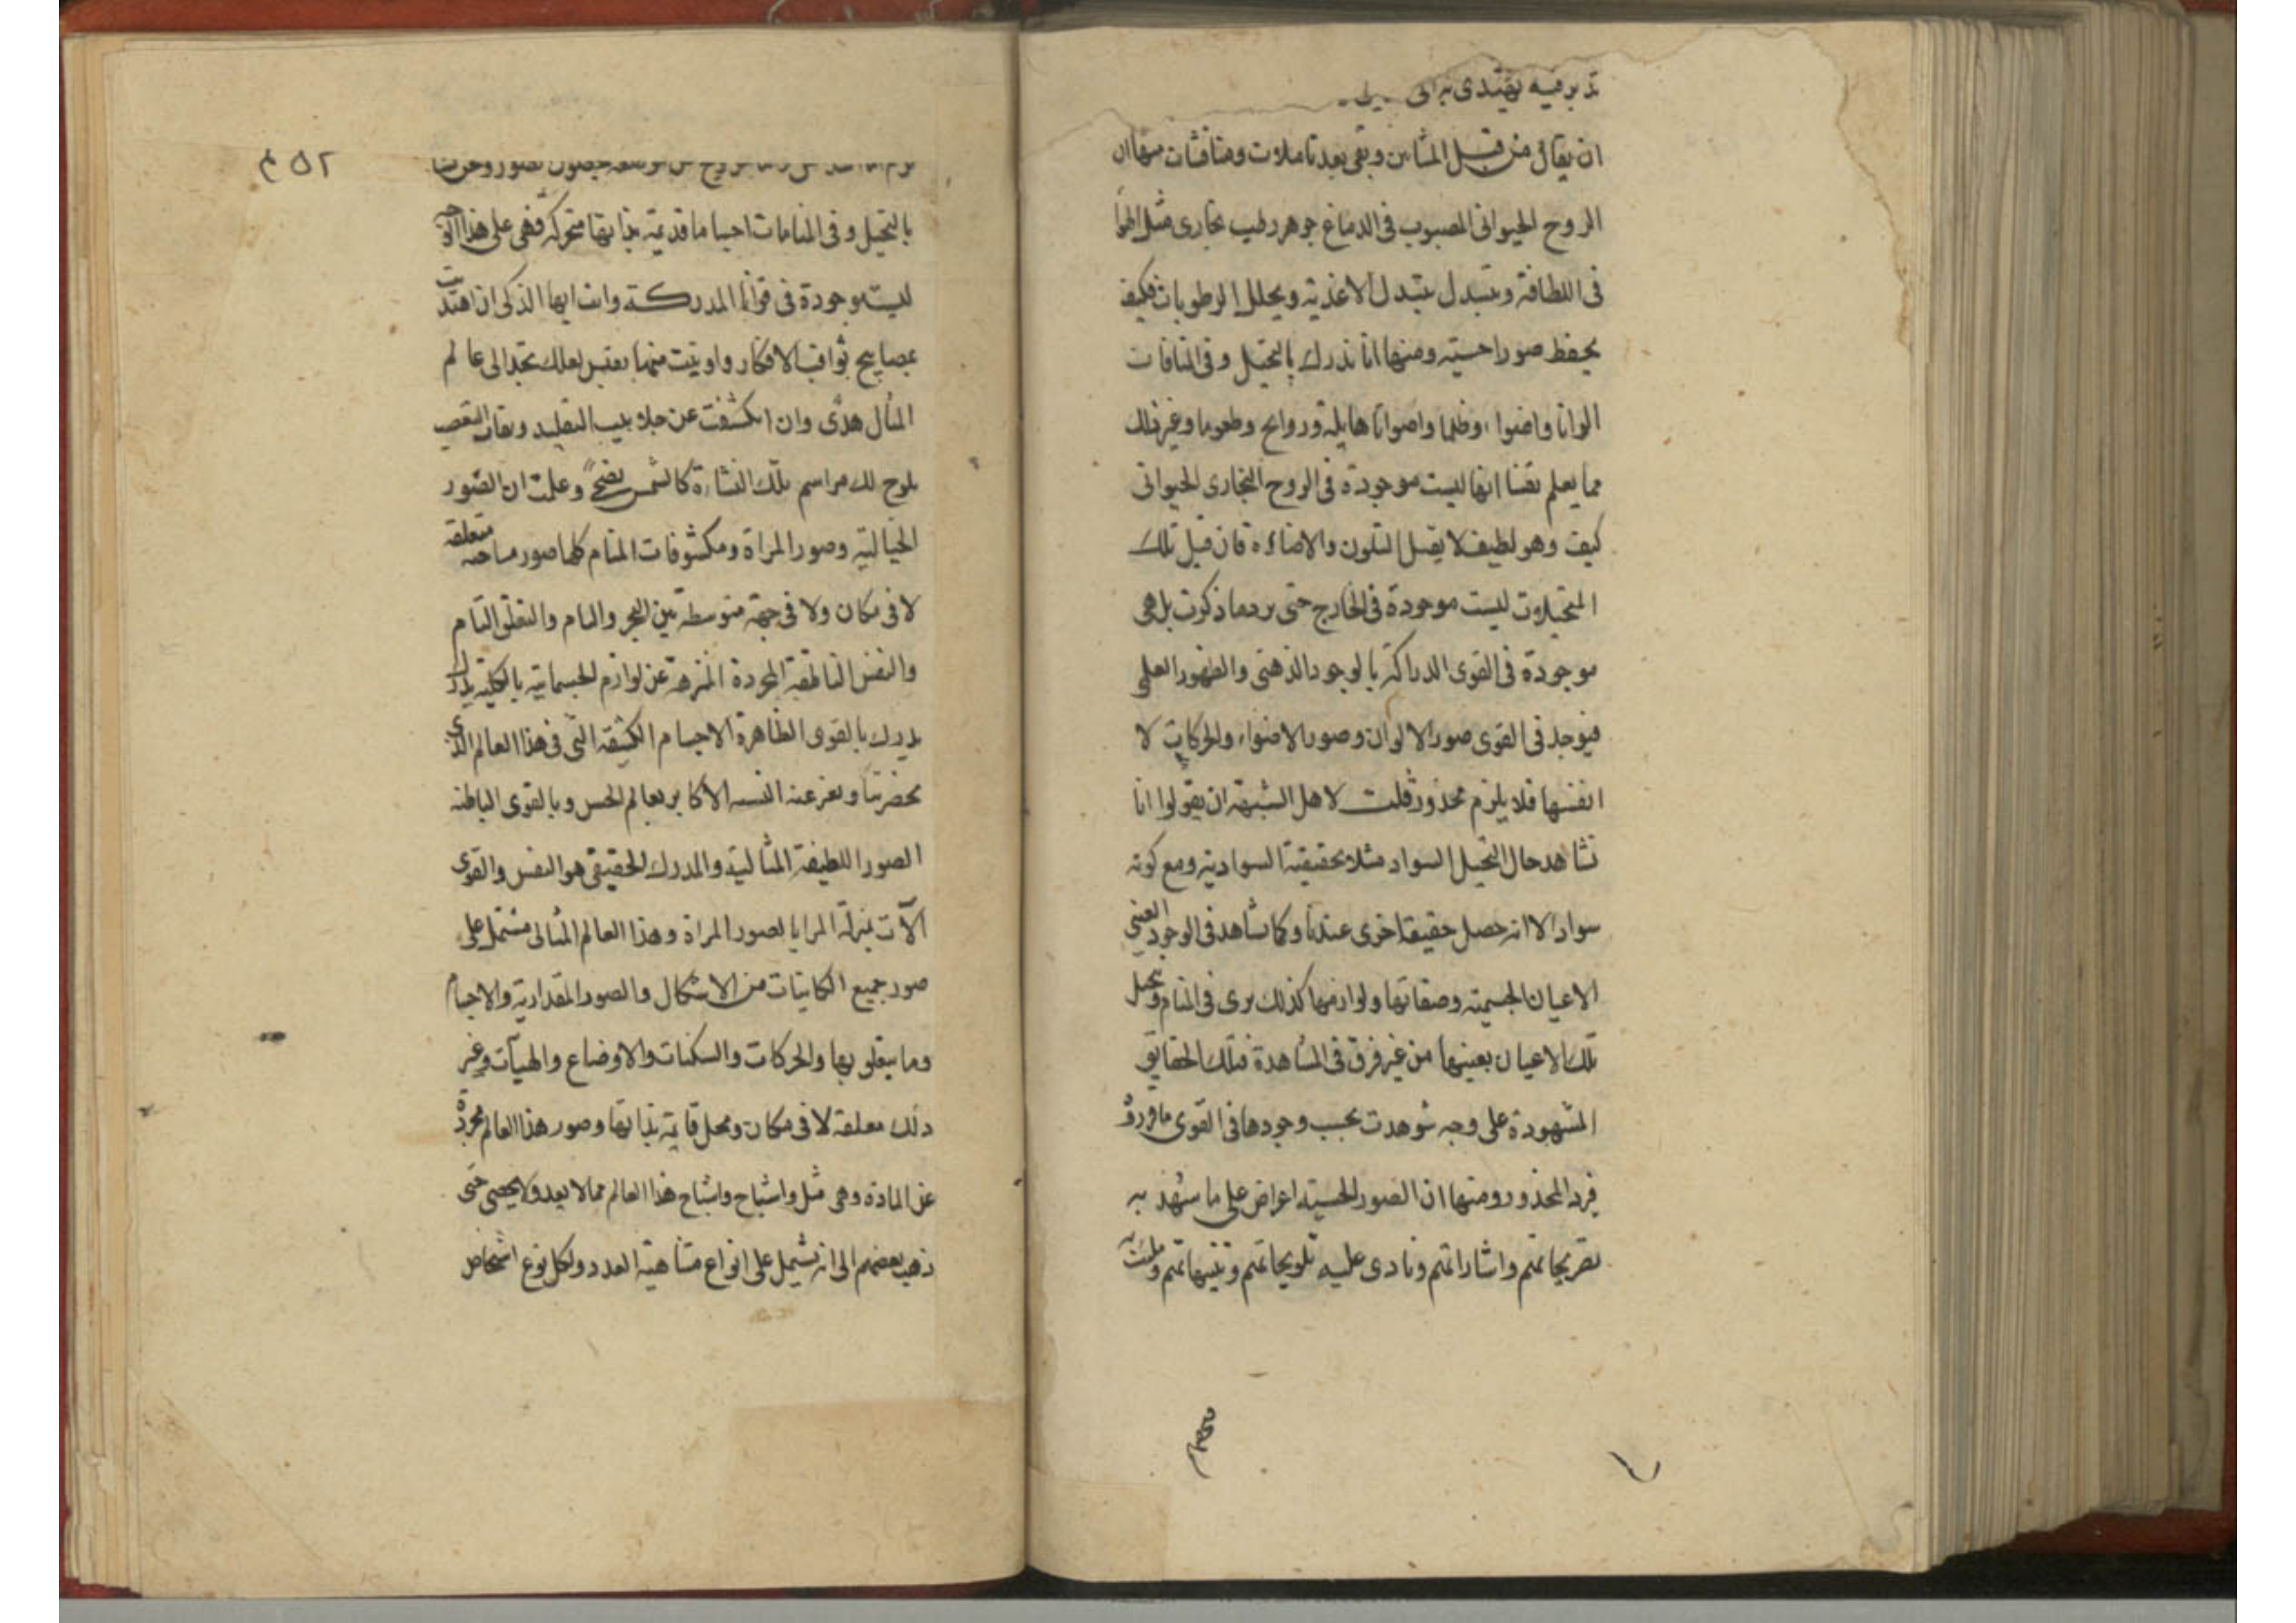 تدبر فيه يهتدى به الى
ان يقال من قبل المشاءين وبقى بعد تاملات ومناقشات منها ان
الروح الحيوانى المصبوب فى الدماغ جوهر رطب بخارى مثل الهوا
فى اللطافة ويتبدل بتبدل الاغذية ويحلل الرطوبات فكيف
يحفظ صورا حسية ومنها انا ندرك بالتخيل وفى المنامات
الوانا واضواء وظلما واصواتا هايلة وروايح وطعوما وغير ذلك
مما يعلم يقينا انها ليست موجودة فى الروح البخارى الحيوانى
كيف وهو لطيف لا يقبل التلون والاضاءة فان قيل تلك
المتخيلات ليست موجودة فى الخارج حتى يرد ما ذكرت بل هى
موجودة فى القوى الدراكة بالوجود الذهنى والظهور العلمى
فيوجد فى القوى صور الالوان وصور الاضواء والحركات لا
انفسها فلا يلزم محذور قلت لاهل الشبهة ان يقولوا انا
نشاهد حال التخيل السواد مثلا بحقيقية السوادية ومع كونه
سوادا الا انه حصل حقيقة اخرى عندنا وكما نشاهد فى الوجود العينى
الاعيان الجسمية وصفاتها ولوازمها كذلك نرى فى المنام ونخيل
تلك الاعيان بعينها من غير فرق فى المشاهدة فتلك الحقايق
المشهودة على وجه شوهدت بحسب وجودها فى القوى
فيرد المحذور ومنها ان الصور الحسية اعراض على ما شهد به
تصريحاتهم واشاراتهم ونادى عليه تلويحاتهم وتنبيهاتهم
٢٥٢
بالتخيل وفى المنامات اجساما قديمة بذاتها متحركة فهى على هذا
ليست موجودة فى قوانا المدركة وانت ايها الذكى ان اهتديت
بمصابيح ثواقب الافكار واوتيت منها بقبس لعلك تجد الى عالم
المثال هدى وان انكشفت عن جلابيب التقليد ونقاب التعصب
يلوح لك مراسم تلك النشاءة كالشمس وعلمت ان الصور
الخيالية وصور المراة ومكشوفات المنام كلها صور متعلقة
لا فى مكان ولا فى جهة متوسطة بين التجرد والتعلق التام
والنفس الناطقة المجردة المنزهة عن لوازم الجسمانية بالكلية
يدرك بالقوى الظاهرة الاجسام الكثيفة التى فى هذا العالم الذى
بحضرتنا ويعبر عنه السنة الاكابر بعالم الحس وبالقوى الباطنة
الصور اللطيفة المثالية والمدرك الحقيقى هو النفس والقوى
آلات بمنزلة المرايا لصور المراة وهذا العالم المثالى مشتمل على
صور جميع الكاينات من الاشكال والصور المقدارية والاجسام
وما يتعلق بها والحركات والسكنات والاوضاع والهيآت وغير
ذلك معلقة لا فى مكان ومحل قايمة بذاتها وصور هذا العالم مجردة
عن المادة وهى مثل واشباح واشباح هذا العالم مما لا يعد ولا يحصى حتى
ذهب بعضهم الى انه يشتمل على انواع متناهية العدد ولكل نوع اشخاص